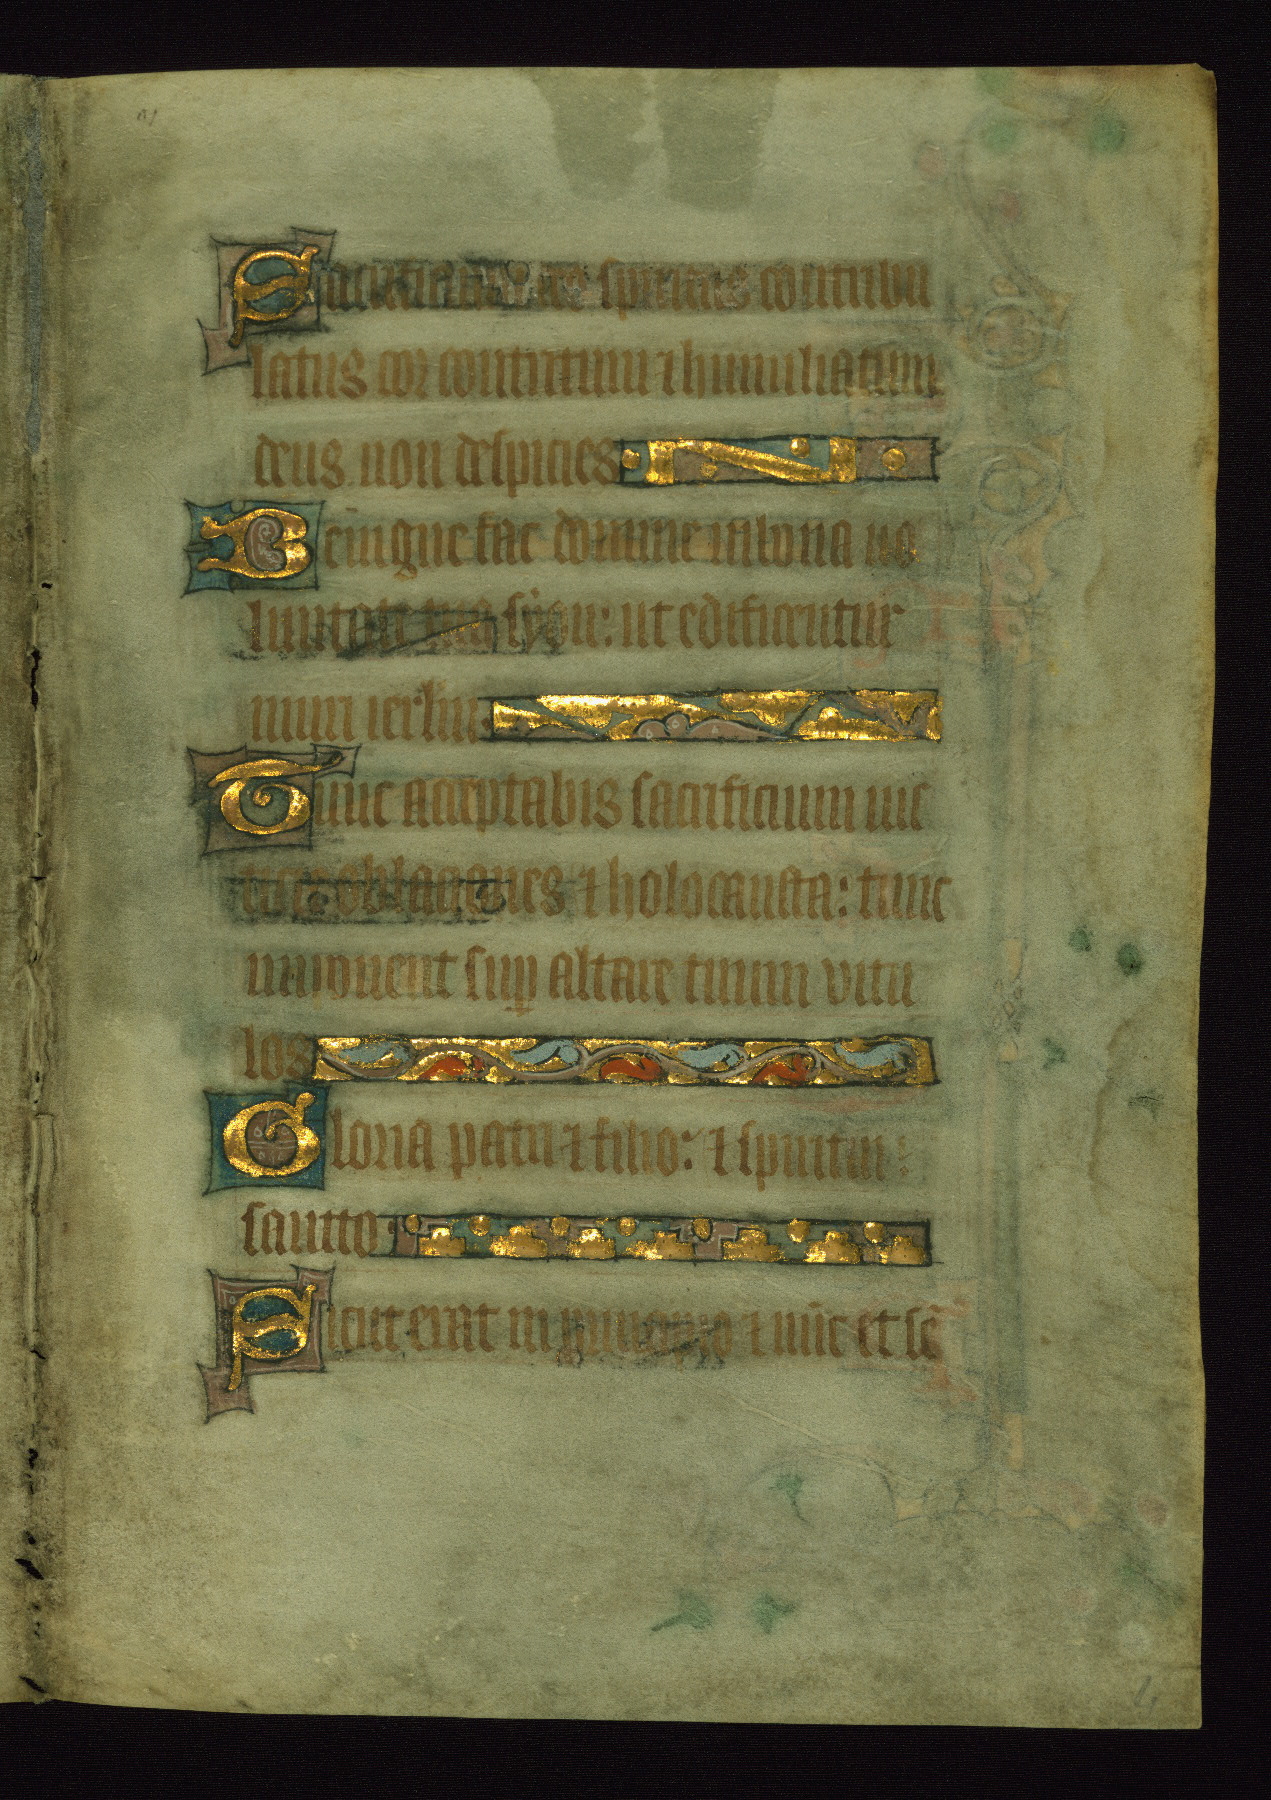 Sacrificium deo spiritus contribu
latus cor contritum ⁊ humiliatum
deus non despicies
Benigne fac domine in bona uo
luntate tua syon: ut edificentur
muri ierl'm
Tunc acceptabis sacrificium ius
ticie oblaciones ⁊ holocausta: tunc
inponent sup altare tuum vitu
los
Gloria patri ⁊ filio: ⁊ spiritui
sancto
Sicut erat in principio ⁊ nūc et sē